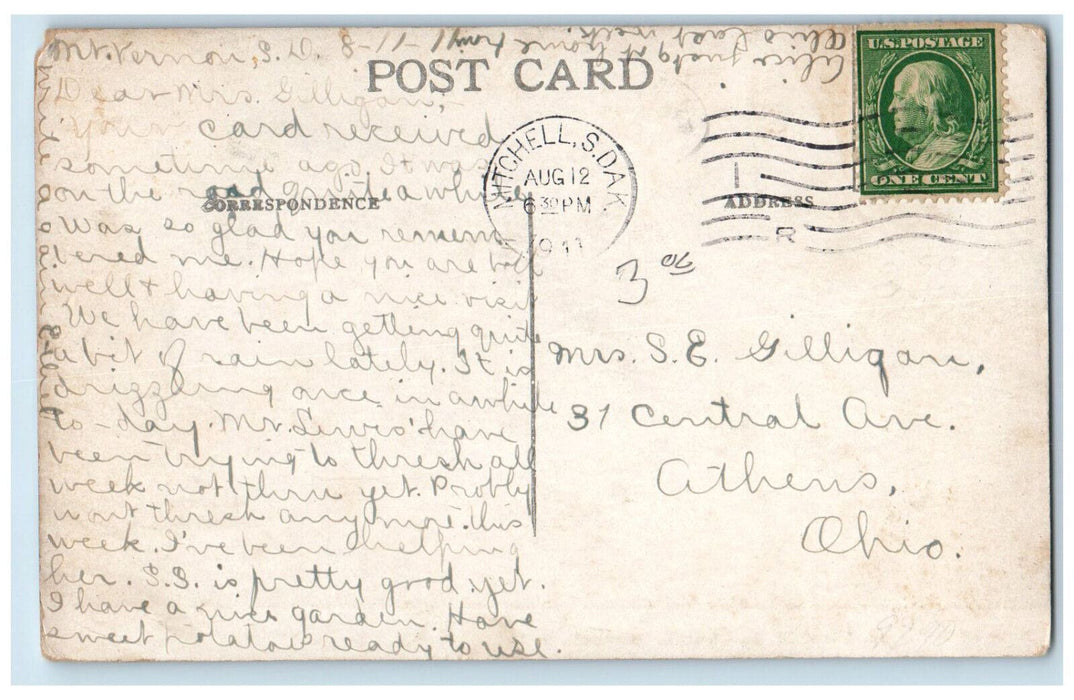 Mt. Vernon, S. D. 8-11-11
POST CARD
Dear Mrs. Gilligan,-
Your card received
sometime ago. It was
on the road quite a while
CORRESPONDENCE
Was so glad you remem-
bered me. Hope you are
well & having a nice visit
We have been getting quite
a bit of rain lately. It is
drizzling once in awhile
to-day. Mr. Lewis' have
been trying to thresh all
week not thru yet. Probly
wont thresh any more this
week. I've been helping
her. S.S. is pretty good yet.
I have a nice garden. Have
sweet potatoes ready to use.
Alice just got home from
Ohio last week.
MITCHELL, S. DAK.
AUG 12
6 30 PM
1911
U.S. POSTAGE
ONE CENT
ADDRESS
R
3 00
Mrs. S. E. Gilligan,
31 Central Ave.
Athens,
Ohio.